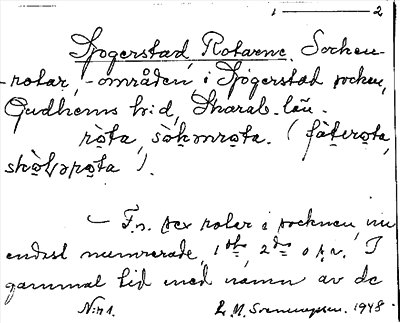 1 ——— 2
Sjogerstad, Rotarne. Socken-
-rotar, -områden, i Sjögerstad socken,
Gudhems h:d, Skarab. län.
rǫta, sǫ̀kənrǫta. (fàtərǫta,
skǫ̀lərǫta).
— F.n. sex rotar i socknen, nu
endast numrerade, 1sta, 2dra o.s.v. I
gammal tid med namn av de
N:r 1. L. M. Svenungsson. 1948.